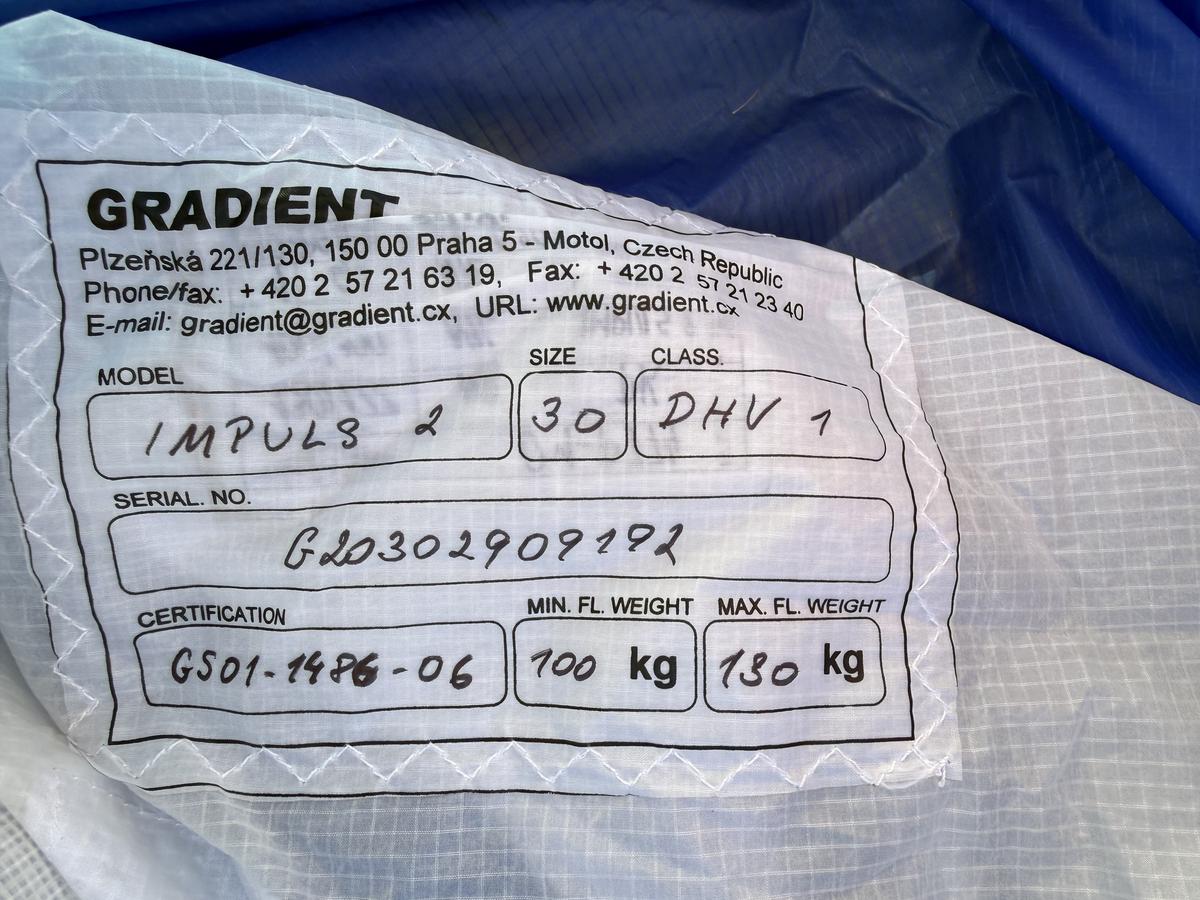 GRADIENT
Plzeňská 221/130, 150 00 Praha 5 - Motol, Czech Republic
Phone/fax: + 420 2 57 21 63 19, Fax: + 420 2 57 21 23 40
E-mail: gradient@gradient.cx, URL: www.gradient.cx
MODEL SIZE CLASS.
IMPULS 2 30 DHV 1
SERIAL. NO.
G20302909192
CERTIFICATION MIN. FL. WEIGHT MAX. FL. WEIGHT
GS01-1486-06 100 kg 130 kg